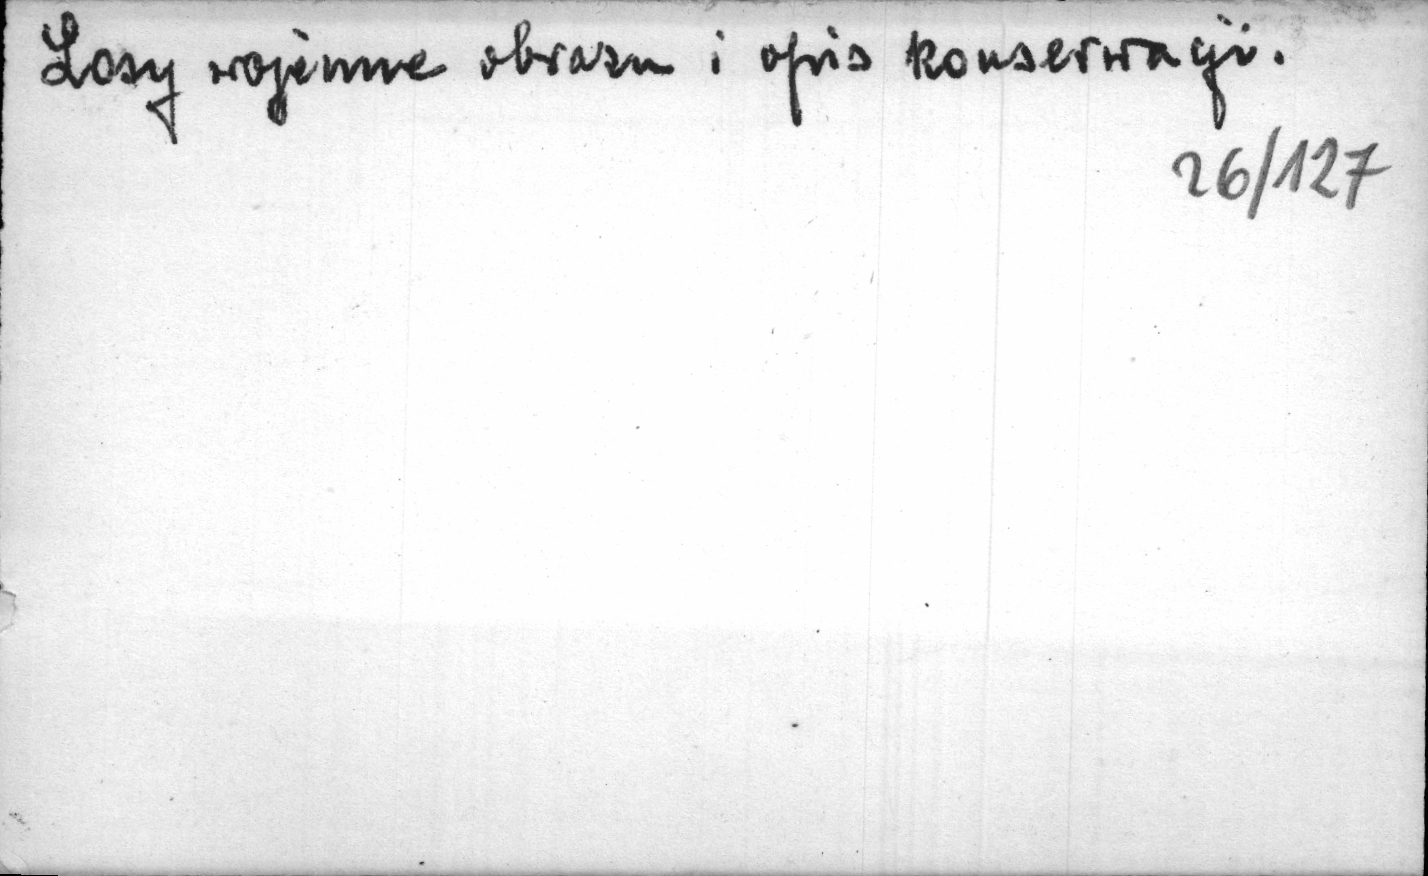 Losy wojenne obrazu i opis konserwacji.
26/127